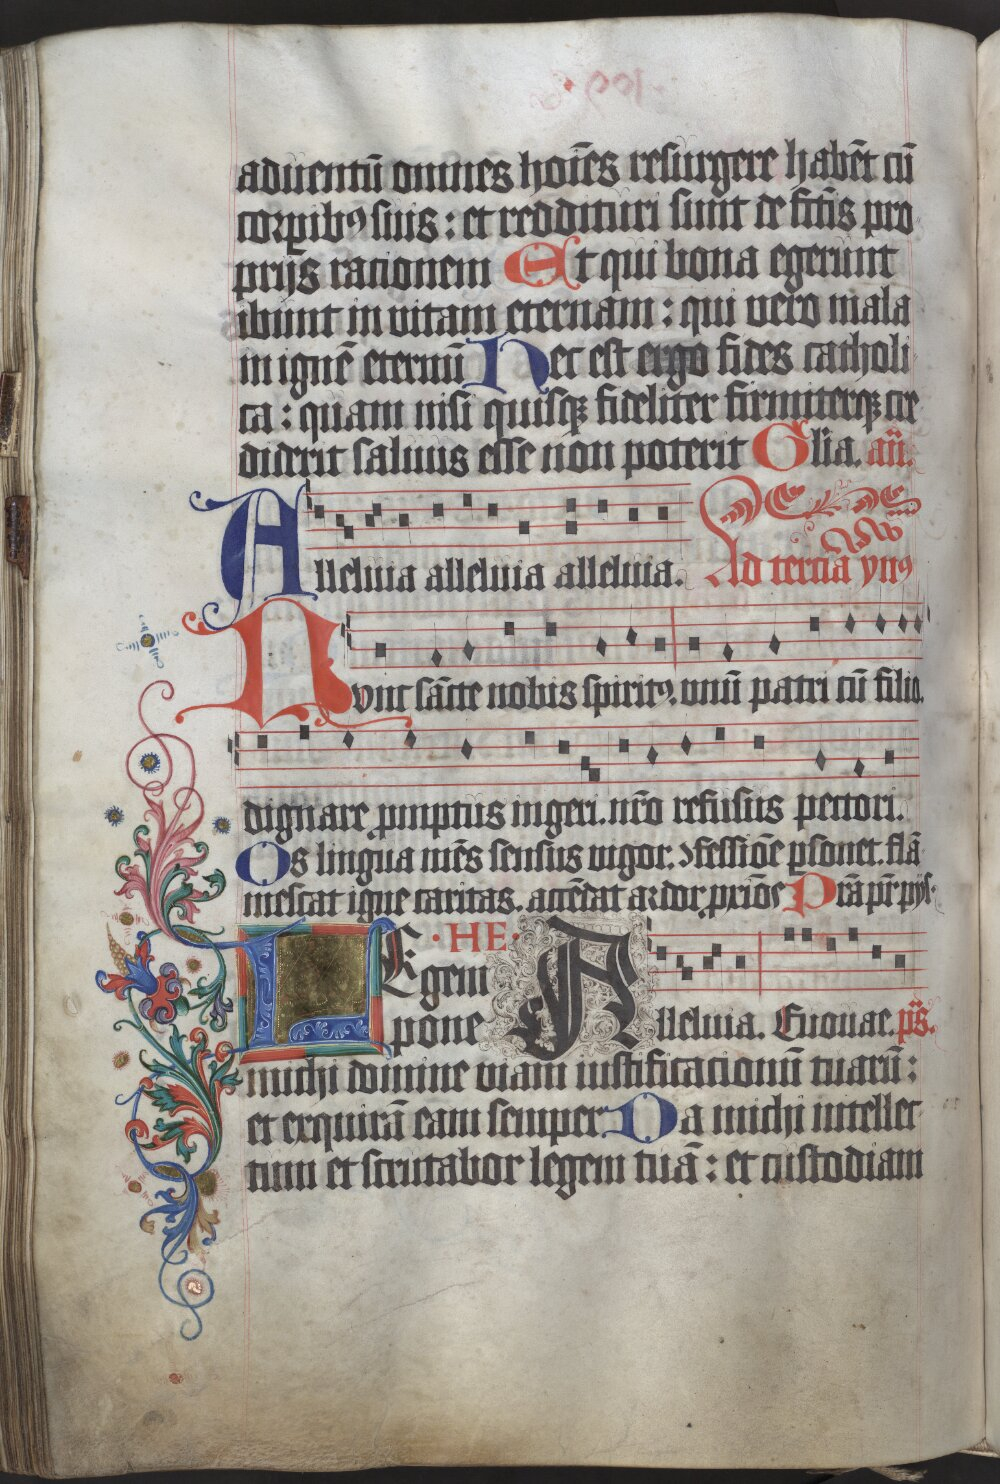 aduentū omnes hoīes resurgere habēt cū
corꝑibꝰ suis : et reddituri sunt de fctīs pro
prijs racionem Et qui bona egerunt
ibunt in vitam eternam : qui vero mala
in ignē eternū Hec est ergo fides catholi
ca : quam nisi quisqꝫ fideliter firmiterqꝫ cre
diderit saluus esse non poterit Glīa. añ.
Alleluia alleluia alleluia. Ad terciā ynꝰ
Nvnc sācte nobis spiritꝰ. vnū patri cū filio.
dignare ꝓmptus ingeri. nrō refusus pectori.
Os lingua mēs sensus vigor. ꝯfessiōe ꝑsonet. flā
mescat igne caritas. accēdat ardor ꝓxīos Prā pr̄ pijs.
LEgem HE
pone Alleluia. Euouae. p̄s.
michi domine viam iustificacionū tuarū :
et exquirā eam semper Da michi intellec
tum et scrutabor legem tuā : et custodiam